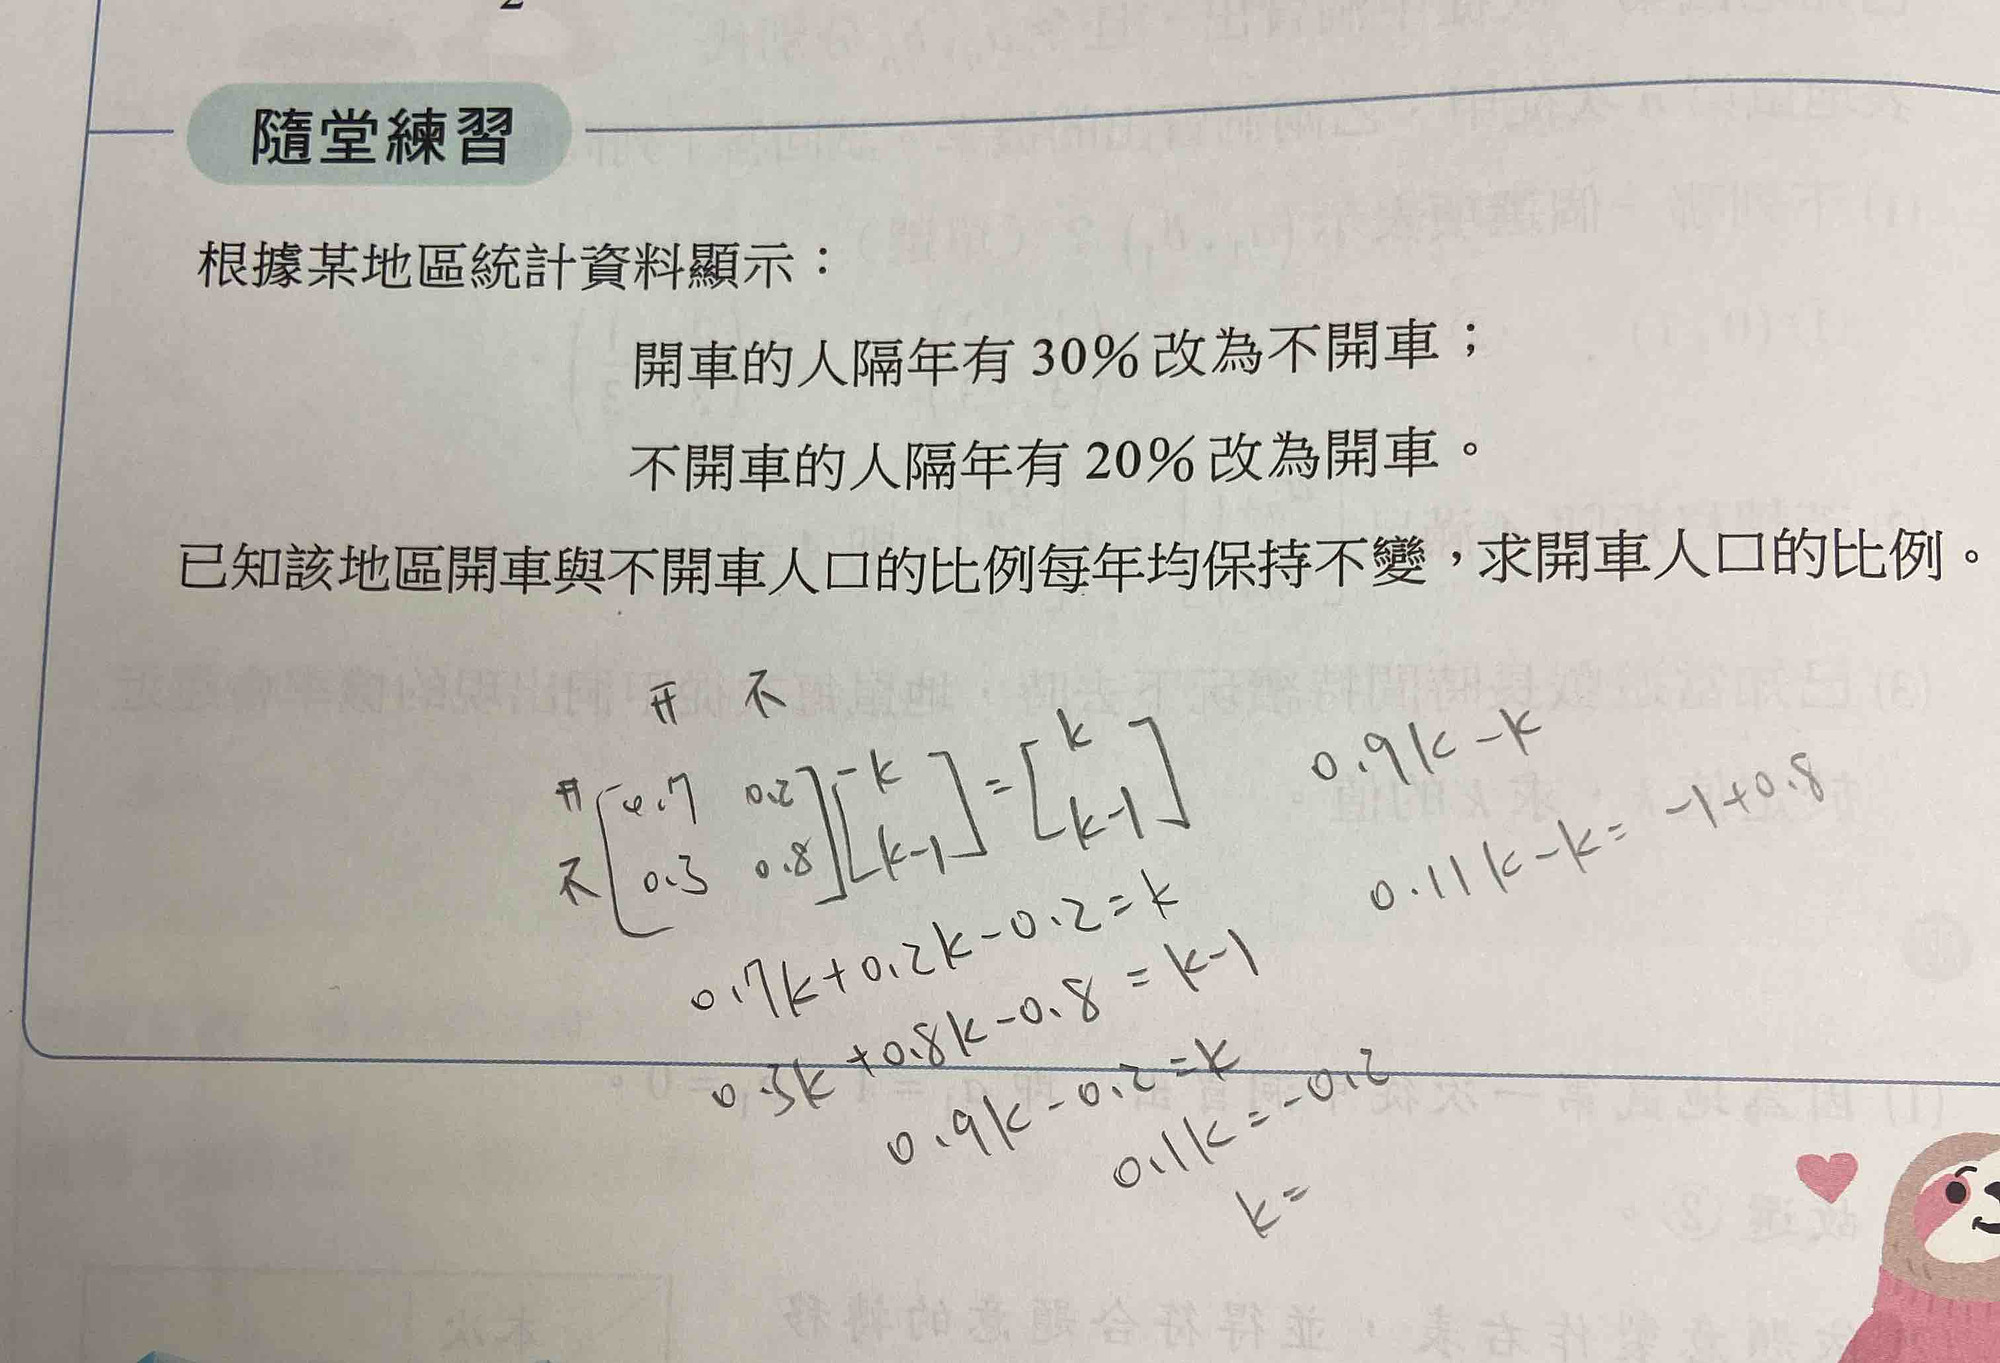 隨堂練習
根據某地區統計資料顯示：
開車的人隔年有 30% 改為不開車；
不開車的人隔年有 20% 改為開車。
已知該地區開車與不開車人口的比例每年均保持不變，求開車人口的比例。
开 不
开 [0.7 0.2] [k] = [k]
不 [0.3 0.8] [k-1] [k-1]
0.9k-k
0.11k-k=-1+0.8
0.7k+0.2k-0.2=k
0.3k+0.8k-0.8=k-1
0.9k-0.2=k
0.1k=-0.2
k=